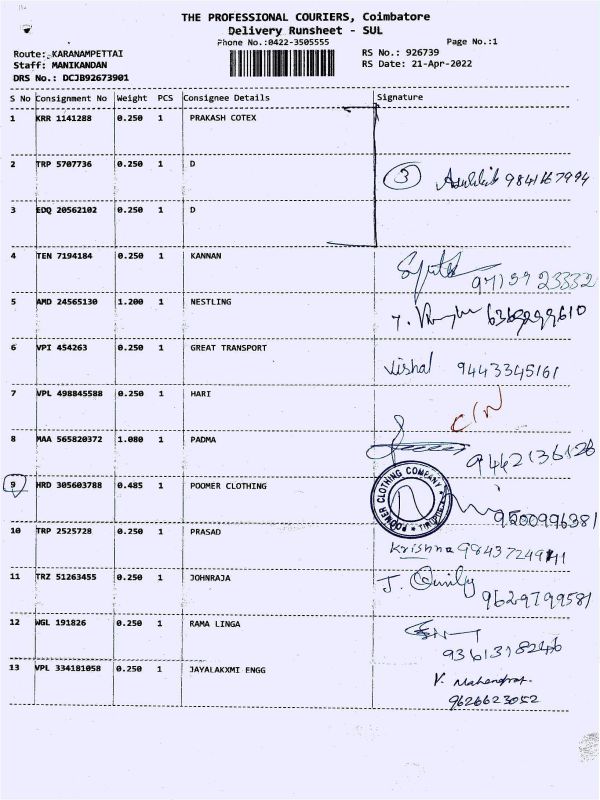 THE PROFESSIONAL COURIERS, Coimbatore
Delivery Runsheet - SUL
Phone No.:0422-3505555 Page No.:1
Route: KARANAMPETTAI RS No.: 926739
Staff: MANIKANDAN RS Date: 21-Apr-2022
DRS No.: DCJB92673901
S No Consignment No Weight PCS Consignee Details Signature
1 KRR 1141288 0.250 1 PRAKASH COTEX
2 TRP 5707736 0.250 1 D
3 9841167994
3 EDQ 20562102 0.250 1 D
4 TEN 7194184 0.250 1 KANNAN
9715923332
5 AMD 24565130 1.200 1 NESTLING
6369299610
6 VPI 454263 0.250 1 GREAT TRANSPORT
Vishal 9443345161
7 VPL 498845588 0.250 1 HARI
C/N
8 MAA 565820372 1.080 1 PADMA
9442136126
9 HRD 305603788 0.485 1 POOMER CLOTHING
POOMER CLOTHING COMPANY
9500996381
10 TRP 2525728 0.250 1 PRASAD
Krishna
11 TRZ 51263455 0.250 1 JOHNRAJA
9629799581
12 WGL 191826 0.250 1 RAMA LINGA
9361318246
13 VPL 334181058 0.250 1 JAYALAKXMI ENGG
V. Mahendran
9626623052